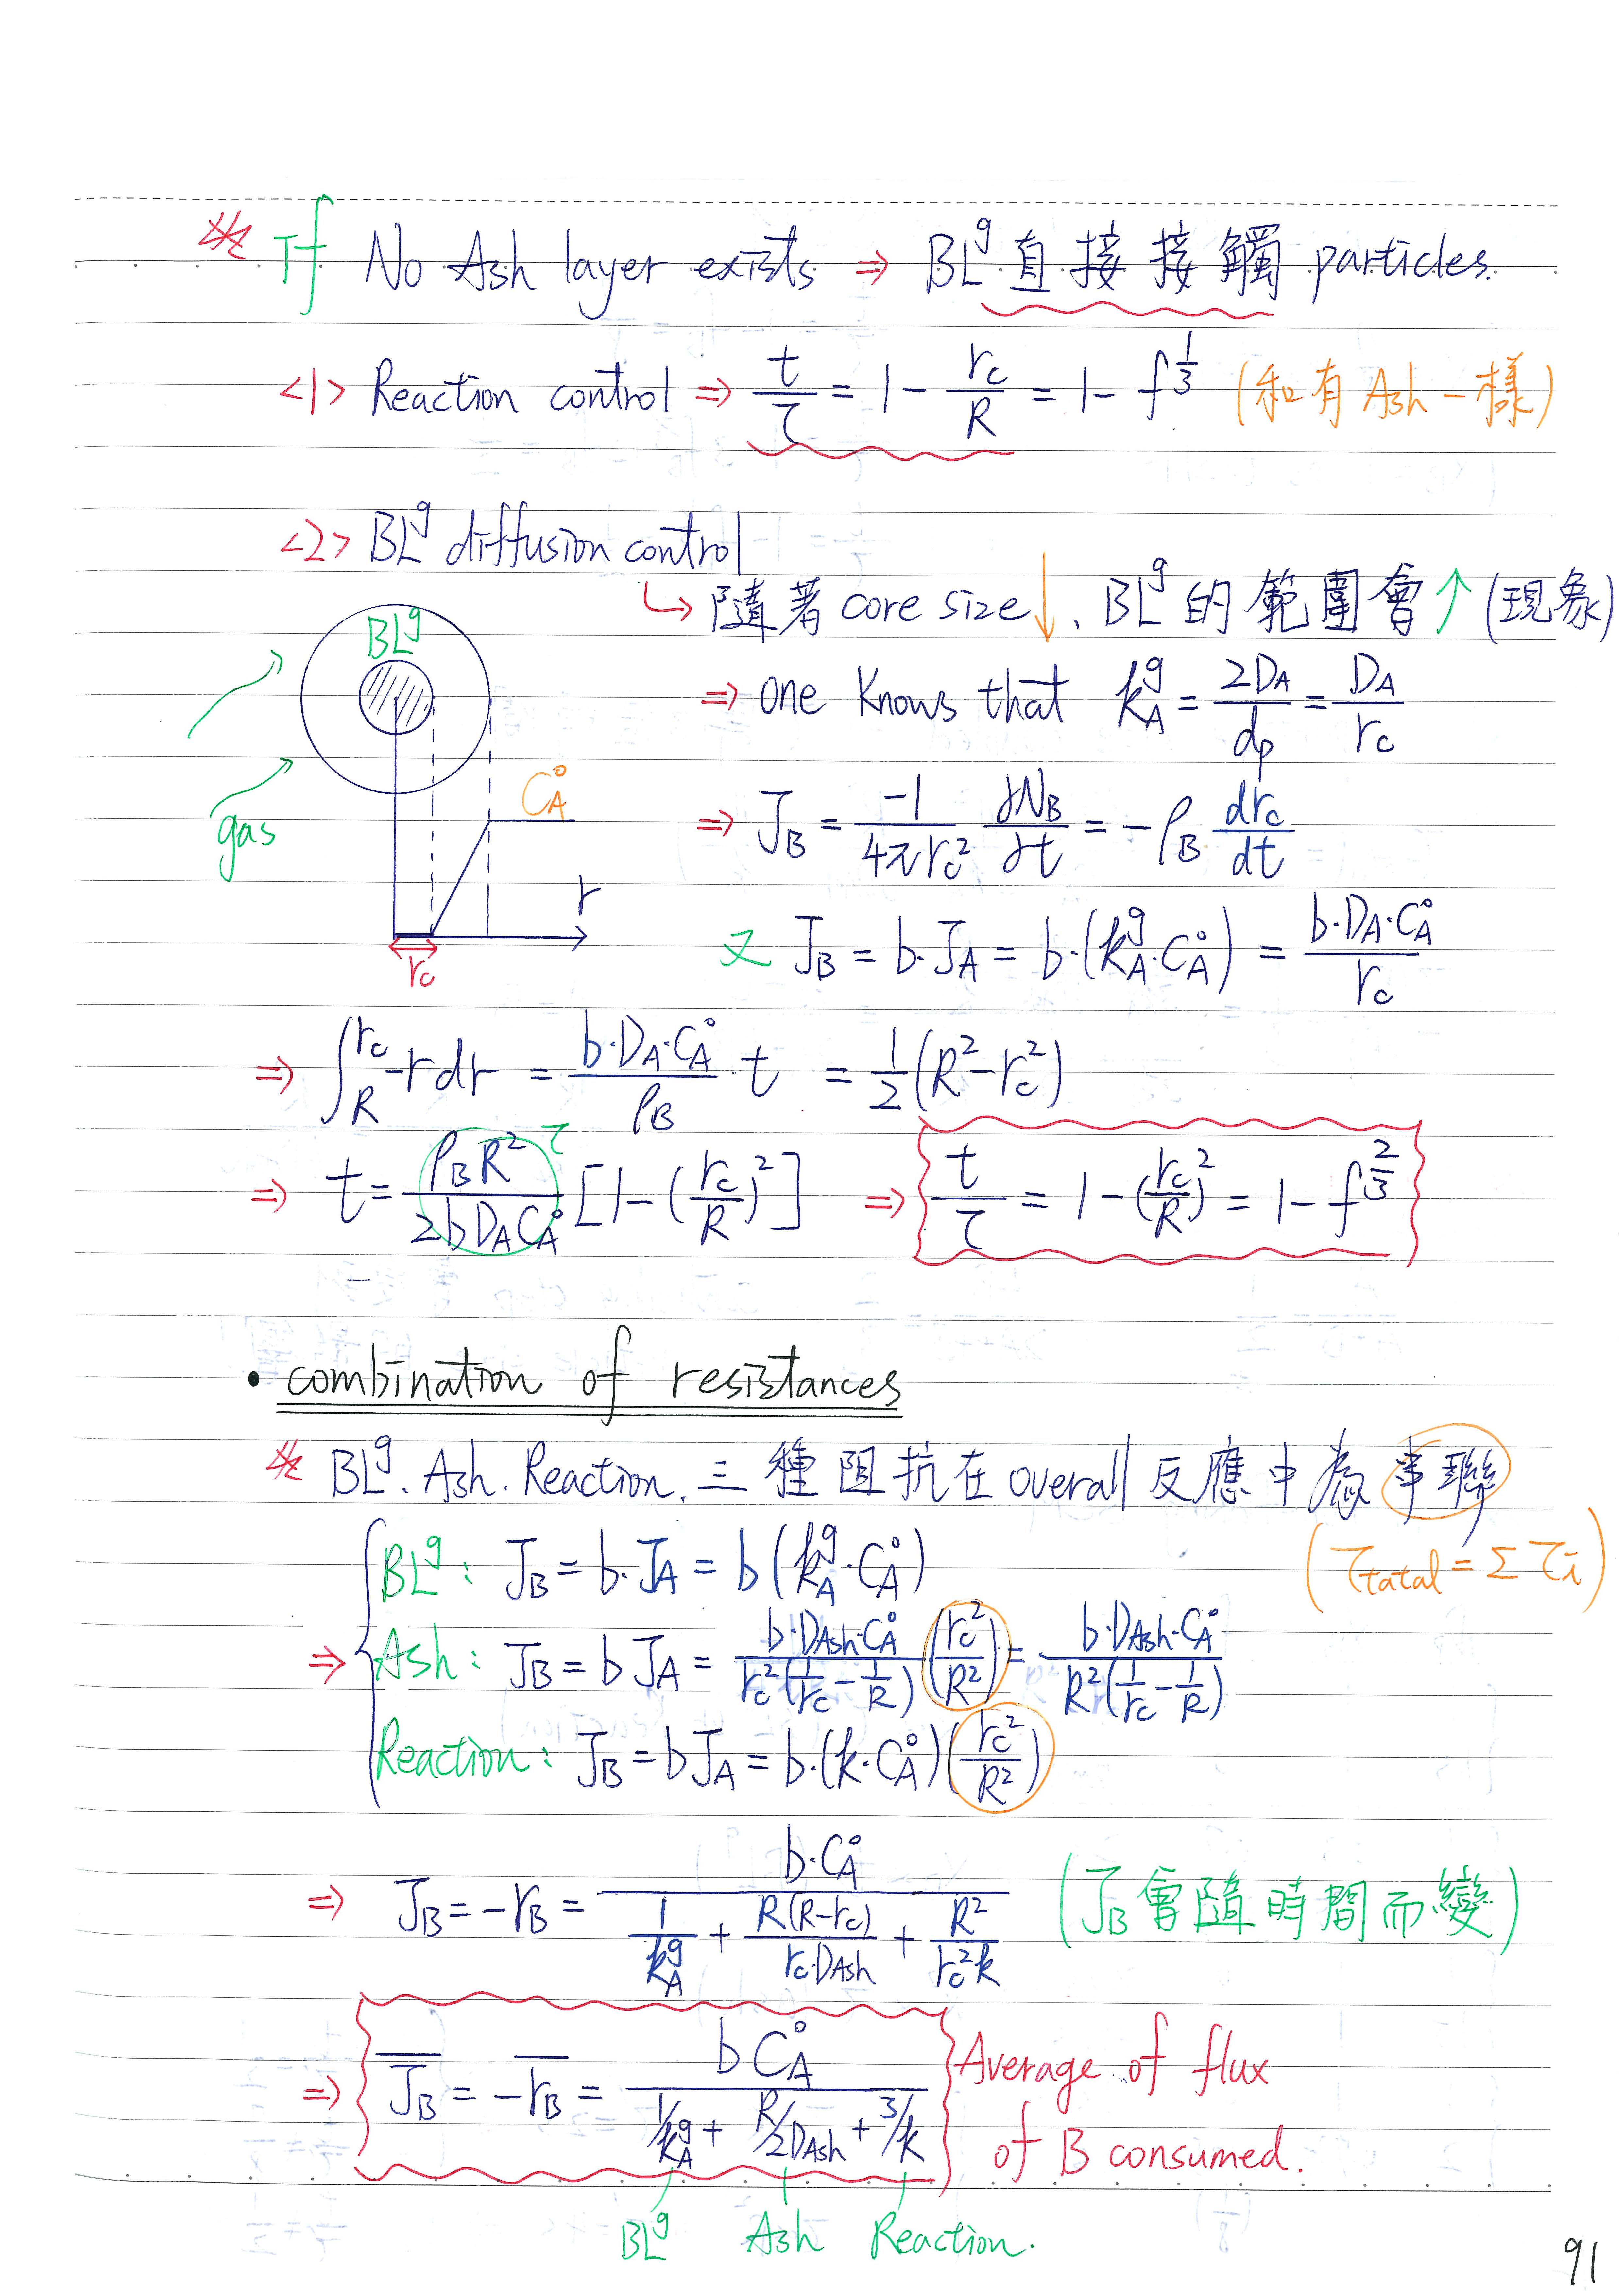 ※ If No Ash layer exists ⇒ BL^g 直接接觸 particles.
<1> Reaction control ⇒ t/τ = 1 - r_c/R = 1 - f^(1/3) (和有 Ash 一樣)
<2> BL^g diffusion control
↳ 隨著 core size ↓、BL^g 的範圍會 ↑ (現象)
BL^g
⇒ one knows that k_A^g = 2D_A/d_p = D_A/r_c
C_A°
gas
⇒ J_B = -1/(4πr_c²) dN_B/dt = -ρ_B dr_c/dt
r
又 J_B = b·J_A = b·(k_A^g·C_A°) = b·D_A·C_A°/r_c
r_c
⇒ ∫_R^(r_c) -r dr = (b·D_A·C_A°/ρ_B)·t = 1/2 (R² - r_c²)
⇒ t = ρ_B R²/(2bD_A C_A°) [1 - (r_c/R)²] ⇒ t/τ = 1 - (r_c/R)² = 1 - f^(2/3)
τ
• combination of resistances
※ BL^g. Ash. Reaction. 三種阻抗在 overall 反應中為串聯
(τ_tatal = Σ τ_i)
BL^g: J_B = b·J_A = b(k_A^g·C_A°)
⇒ Ash: J_B = b J_A = b·D_Ash·C_A°/(r_c²(1/r_c - 1/R)) (r_c²/R²) = b·D_Ash·C_A°/(R²(1/r_c - 1/R))
Reaction: J_B = b J_A = b·(k·C_A°)(r_c²/R²)
⇒ J_B = -r_B = b·C_A°/(1/k_A^g + R(R-r_c)/(r_c·D_Ash) + R²/(r_c² k)) (J_B 會隨時間而變)
⇒ J̅_B = -r̅_B = b C_A°/(1/k_A^g + R/2D_Ash + 3/k) Average of flux
of B consumed.
BL^g Ash Reaction.
91